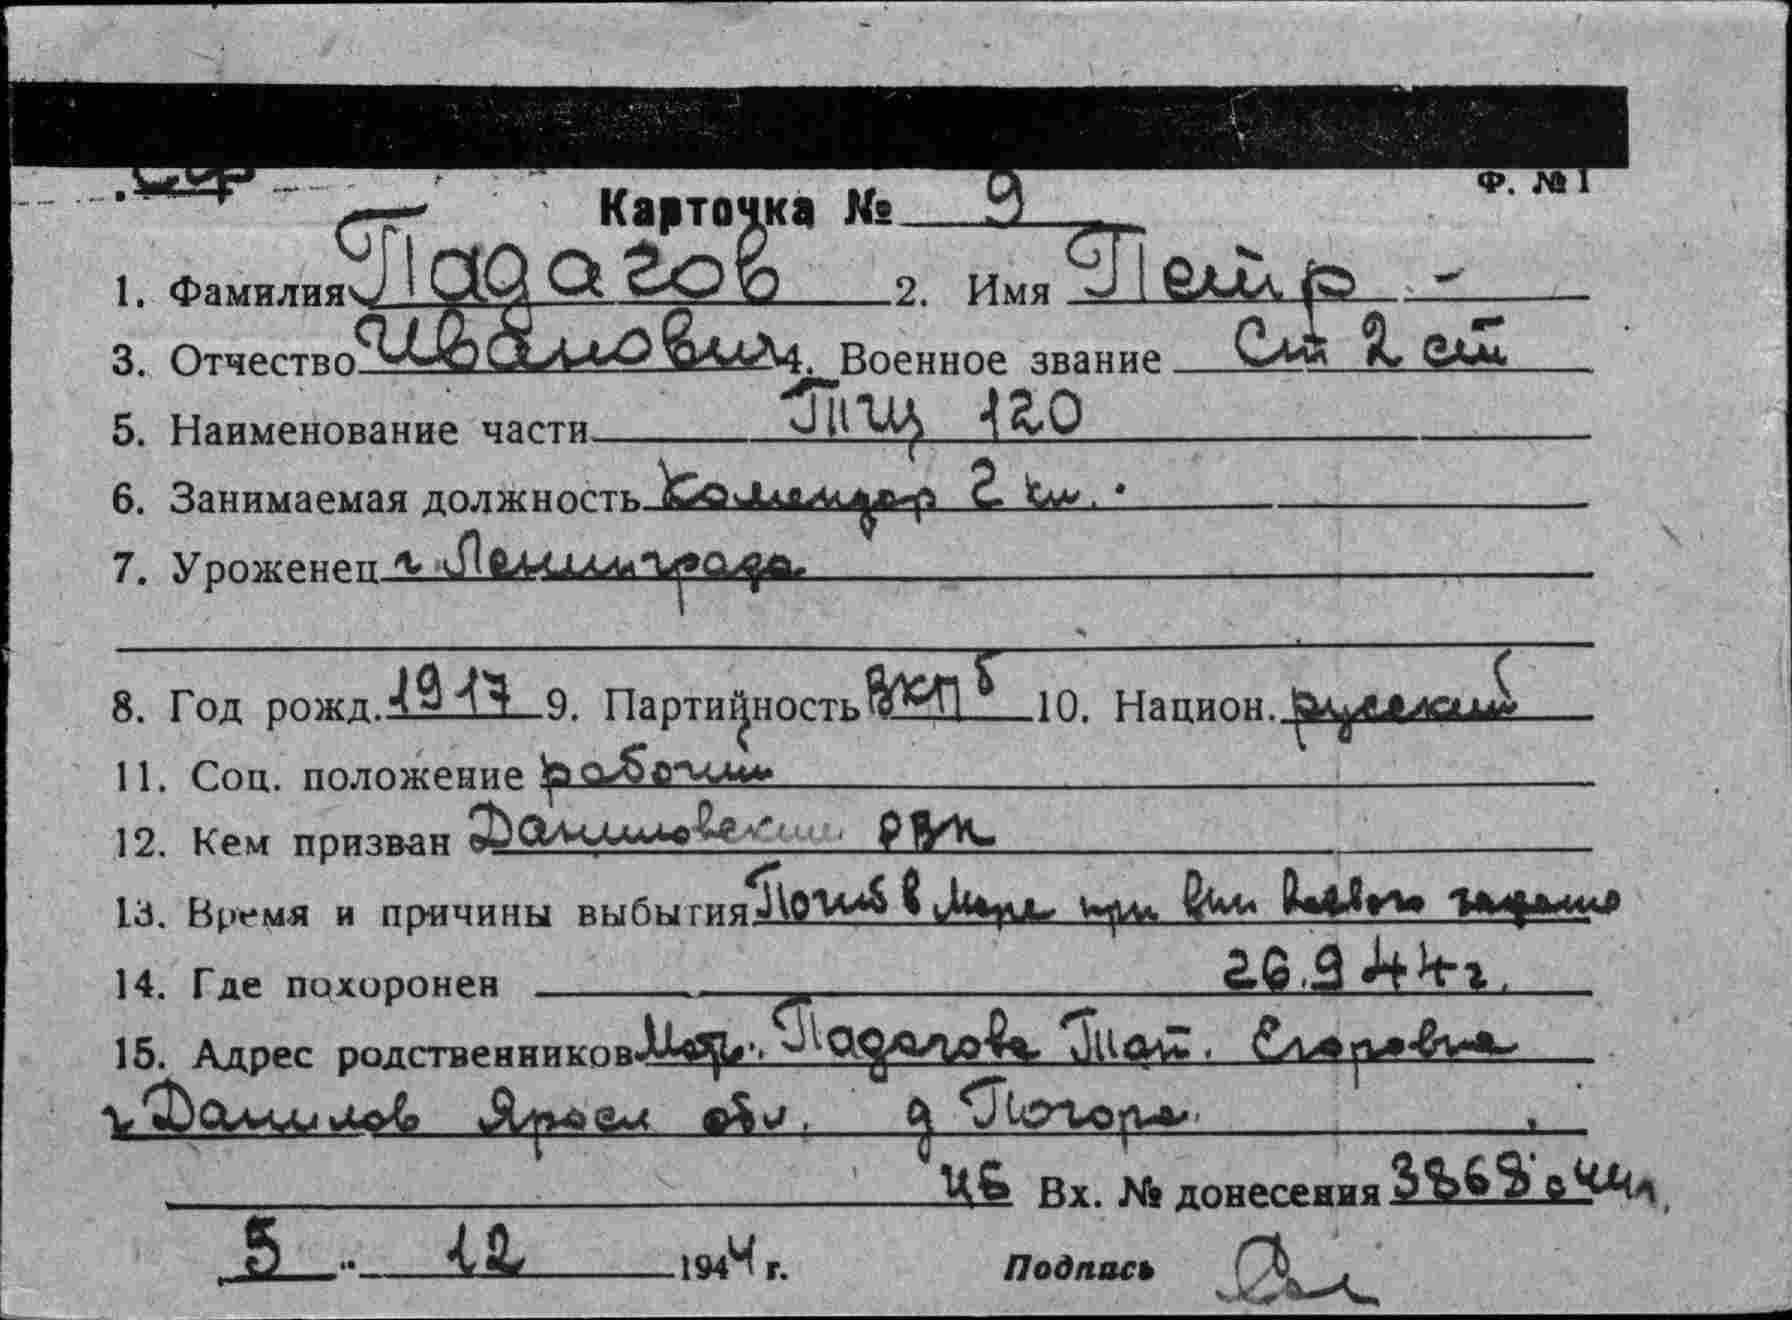 Ф. № 1
Карточка № 9
1. Фамилия Падагов 2. Имя Петр -
3. Отчество Иванович 4. Военное звание Ст 2 ст
5. Наименование части ТЩ 120
6. Занимаемая должность Комендор 2 кл.
7. Уроженец г Ленинграда
8. Год рожд. 1917 9. Партийность ВКПб 10. Национ. русский
11. Соц. положение рабочий
12. Кем призван Даниловским РВК
13. Время и причины выбытия Погиб в море при вып боевого задания
14. Где похоронен 26.9 44 г.
15. Адрес родственников Мать. Падагова Тат. Егоровна
г Данилов Яросл обл. д Погоре
Вх. № донесения
5 12 1944 г. Подпись